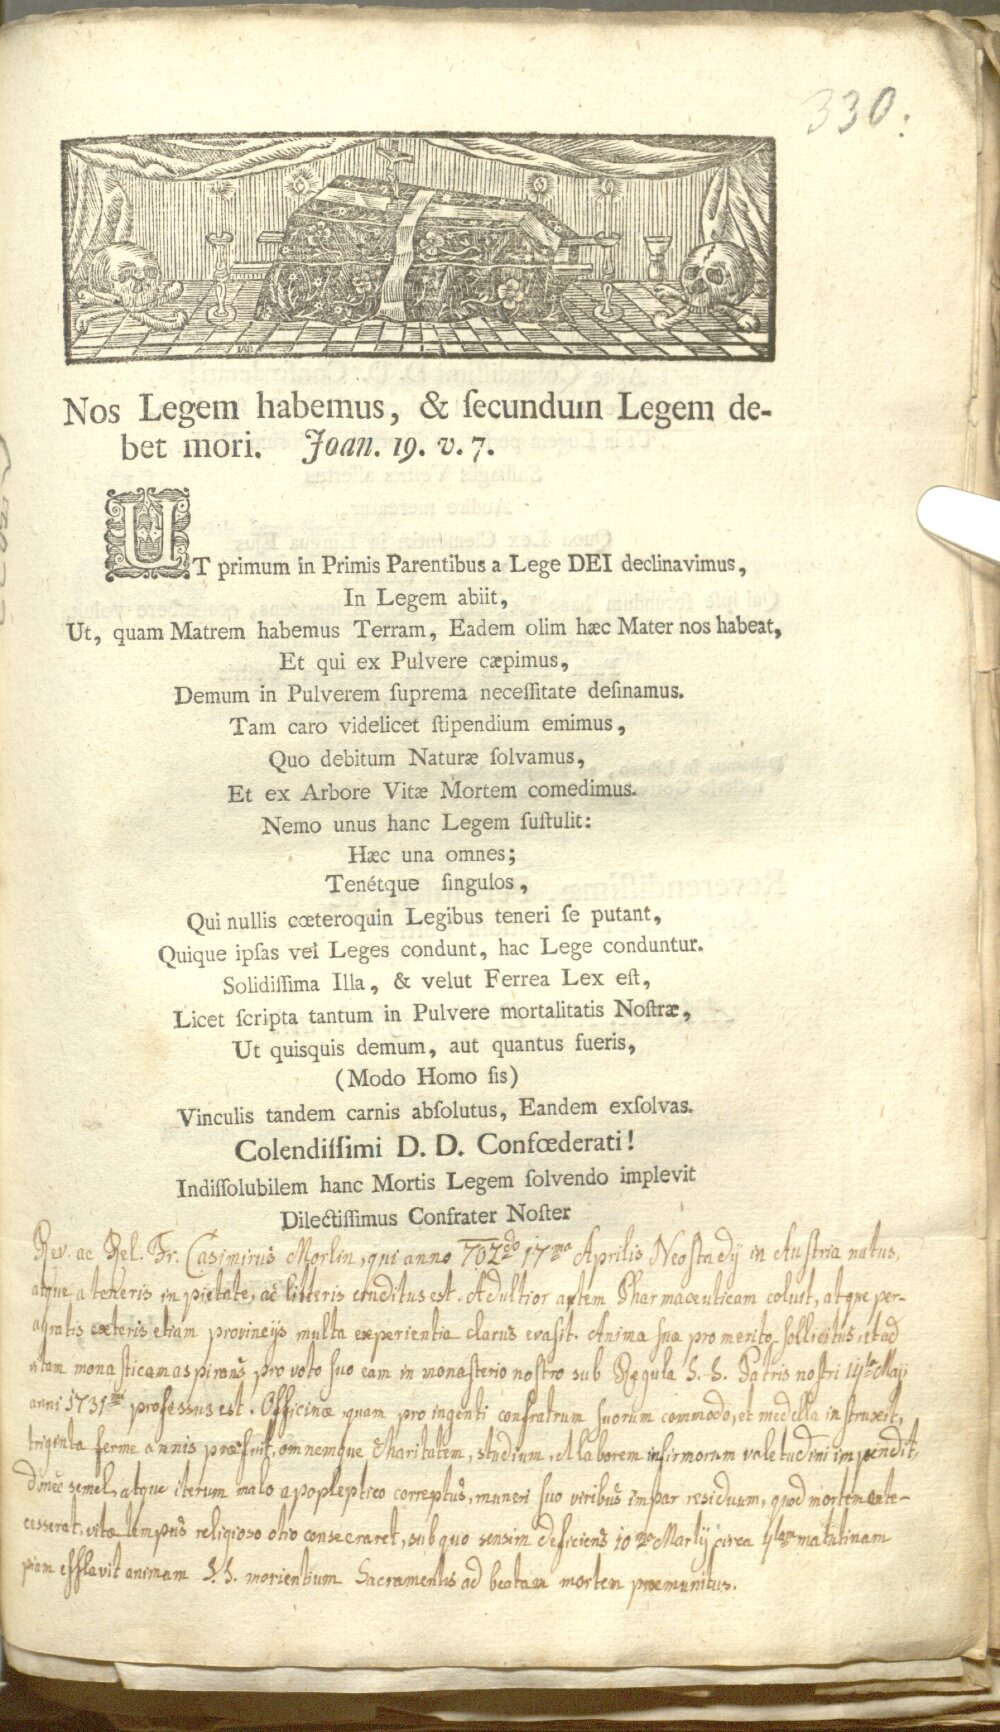 330.
Nos Legem habemus, & ſecundum Legem de-
bet mori. Joan. 19. v. 7.
UT primum in Primis Parentibus a Lege DEI declinavimus,
In Legem abiit,
Ut, quam Matrem habemus Terram, Eadem olim hæc Mater nos habeat,
Et qui ex Pulvere cæpimus,
Demum in Pulverem ſuprema neceſſitate deſinamus.
Tam caro videlicet ſtipendium emimus,
Quo debitum Naturæ ſolvamus,
Et ex Arbore Vitæ Mortem comedimus.
Nemo unus hanc Legem ſuſtulit:
Hæc una omnes;
Tenétque ſingulos,
Qui nullis cœteroquin Legibus teneri ſe putant,
Quique ipſas vel Leges condunt, hac Lege conduntur.
Solidiſſima Illa, & velut Ferrea Lex eſt,
Licet ſcripta tantum in Pulvere mortalitatis Noſtræ,
Ut quisquis demum, aut quantus fueris,
(Modo Homo ſis)
Vinculis tandem carnis abſolutus, Eandem exſolvas.
Colendiſſimi D. D. Confœderati!
Indiſſolubilem hanc Mortis Legem ſolvendo implevit
Dilectiſſimus Confrater Noſter
Rev. ac Rel. Fr. Casimirus Morlin, qui anno 702do 17ma Aprilis Neostadij in Austria natus,
atque a teneris in pietate, ac litteris eruditus est. Adultior autem Pharmaceuticam coluit, atque per-
agratis cæteris etiam provincijs multa experientia clarus evasit. Anima suæ pro merito sollicitus, et ad
vitam monasticam aspirans, pro voto suo eam in monasterio nostro sub Regula S. S. Patris nostri Maji
anni 1731mi professus est. Officinæ quam pro ingenti confratrum suorum commodo, et medella instruxit,
triginta ferme annis præfuit, omnemque Charitatem, studium, et laborem infirmorum valetudini impendit,
donec semel, atque iterum malo apopleptico correptus, muneri suo viribus impar residuum, quod mortem ante-
cesserat, vitæ tempus religioso otio consecraret, sub quo sensim deficiens 10ma Martij circa 4tam matutinam
piam efflavit animam S.S. morientium Sacramentis ad beatam mortem præmunitus.